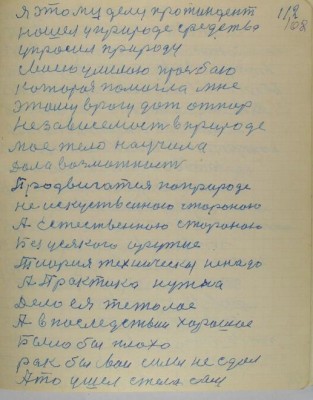 Я этому делу протиндент
нашел у природе средства
упросил природу
Своею умилою прозбаю
которая помогла мне
этаму врагу дат отпор
Независемость в природе
мое тело научила
дала возможность
Продвигатся по природе
не искуственаю стораною
А естественаю стораною
Без усякого оружие
Теория техническая ненадо
А Практика нужна
Дело ея тежолое
А в последствии харошае
Было бы плохо
рак бы свои сили не сдал
А то ушел